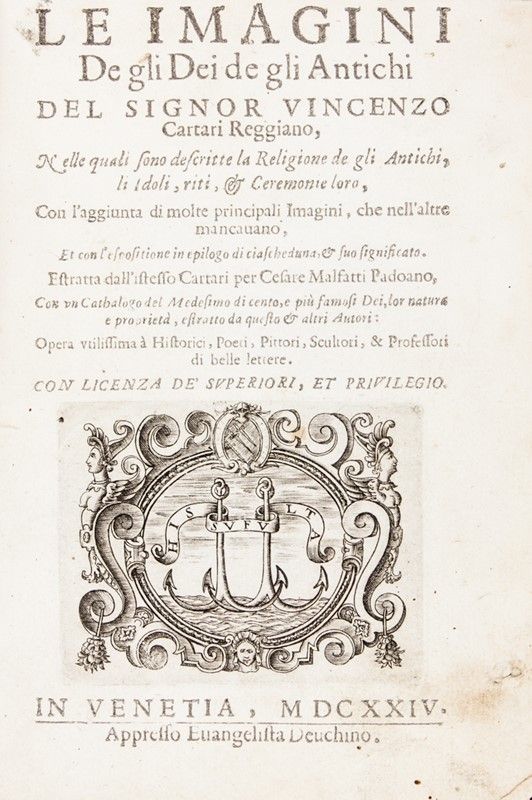 LE IMAGINI
De gli Dei de gli Antichi
DEL SIGNOR VINCENZO
Cartari Reggiano,
Nelle quali ſono deſcritte la Religione de gli Antichi,
li Idoli, riti, & Ceremonie loro,
Con l'aggiunta di molte principali Imagini, che nell'altre
mancauano,
Et con l'eſpoſitione in epilogo di ciaſcheduna, & ſuo ſignificato.
Eſtratta dall'iſteſſo Cartari per Ceſare Malfatti Padoano,
Con vn Cathalogo del Medeſimo di cento, e più famoſi Dei, lor natura
e proprietà, eſtratto da queſto & altri Autori:
Opera vtiliſſima à Hiſtorici, Poeti, Pittori, Scultori, & Profeſſori
di belle lettere.
CON LICENZA DE' SVPERIORI, ET PRIVILEGIO.
HIS SVFVLTA
IN VENETIA, MDCXXIV.
Appreſſo Euangeliſta Deuchino.